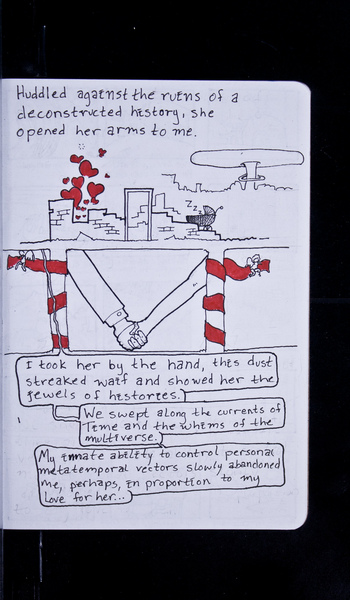 Huddled against the ruins of a
deconstructed history, she
opened her arms to me.
z z z
I took her by the hand, this dust
streaked waif and showed her the
jewels of histories.
We swept along the currents of
Time and the whims of the
multiverse.
My innate ability to control personal
metatemporal vectors slowly abandoned
me, perhaps, in proportion to my
Love for her...